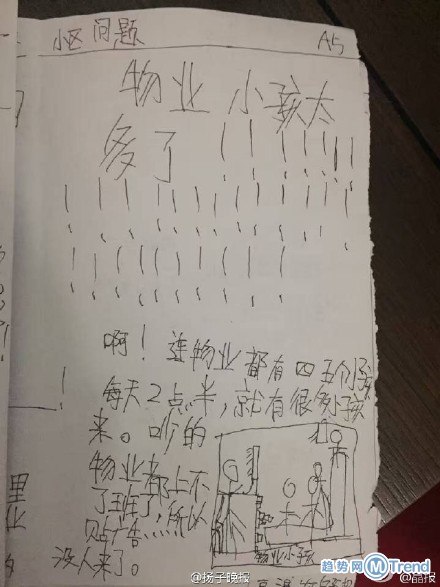 小区问题
A5
物业小孩太
多了！！！！！！！
！！！！！！！！！！！！！
！！！！！！！！！
啊！连物业都有四五个小孩
！
每天2点半，就有很多小孩
来。吵的
物业都上不
了班了，所以
贴广告
没人来了。
物业小孩
里
业
趋势网 M Trend
@扬子晚报
@晶报